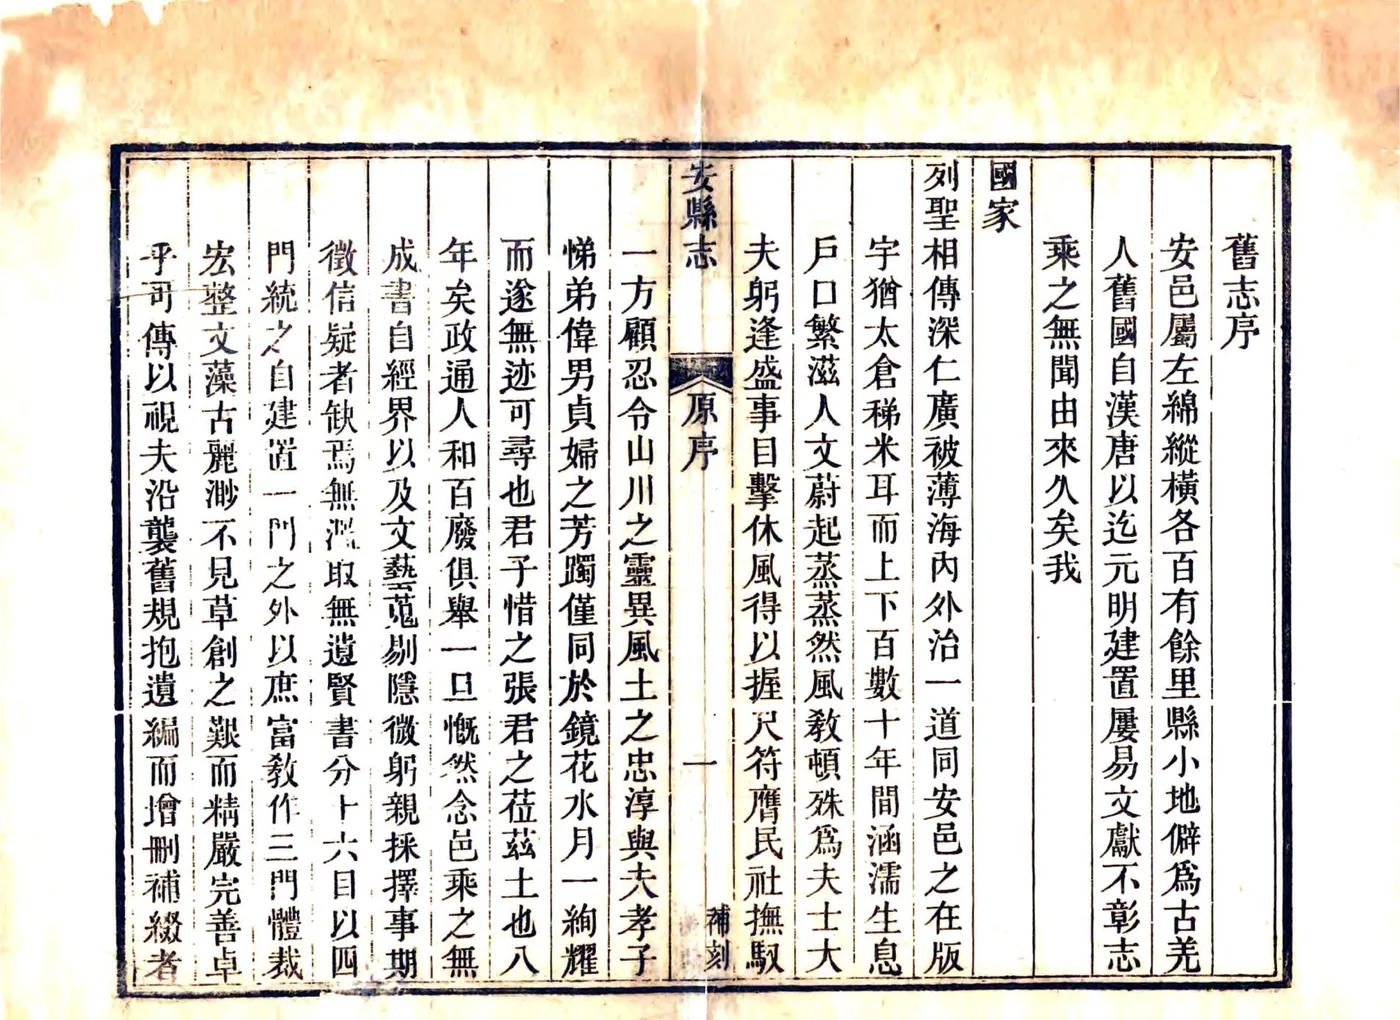 舊志序
安邑屬左綿縱橫各百有餘里縣小地僻爲古羌
人舊國自漢唐以迄元明建置屢易文獻不彰志
乘之無聞由來久矣我
國家
列聖相傳深仁廣被薄海內外治一道同安邑之在版
宇猶太倉稊米耳而上下百數十年間涵濡生息
戶口繁滋人文蔚起蒸蒸然風敎頓殊爲夫士大
夫躬逢盛事目擊休風得以握尺符膺民社撫馭
安縣志
原序
一
補刻
一方顧忍令山川之靈異風土之忠淳與夫孝子
悌弟偉男貞婦之芳躅僅同於鏡花水月一絢耀
而遂無迹可尋也君子惜之張君之莅茲土也八
年矣政通人和百廢俱舉一旦慨然念邑乘之無
成書自經界以及文藝蒐剔隱微躬親採擇事期
徵信疑者缺焉無濫取無遺賢書分十六目以四
門統之自建置一門之外以庶富敎作三門體裁
宏整文藻古麗渺不見草創之艱而精嚴完善卓
乎可傳以視夫沿襲舊規抱遺編而增刪補綴者